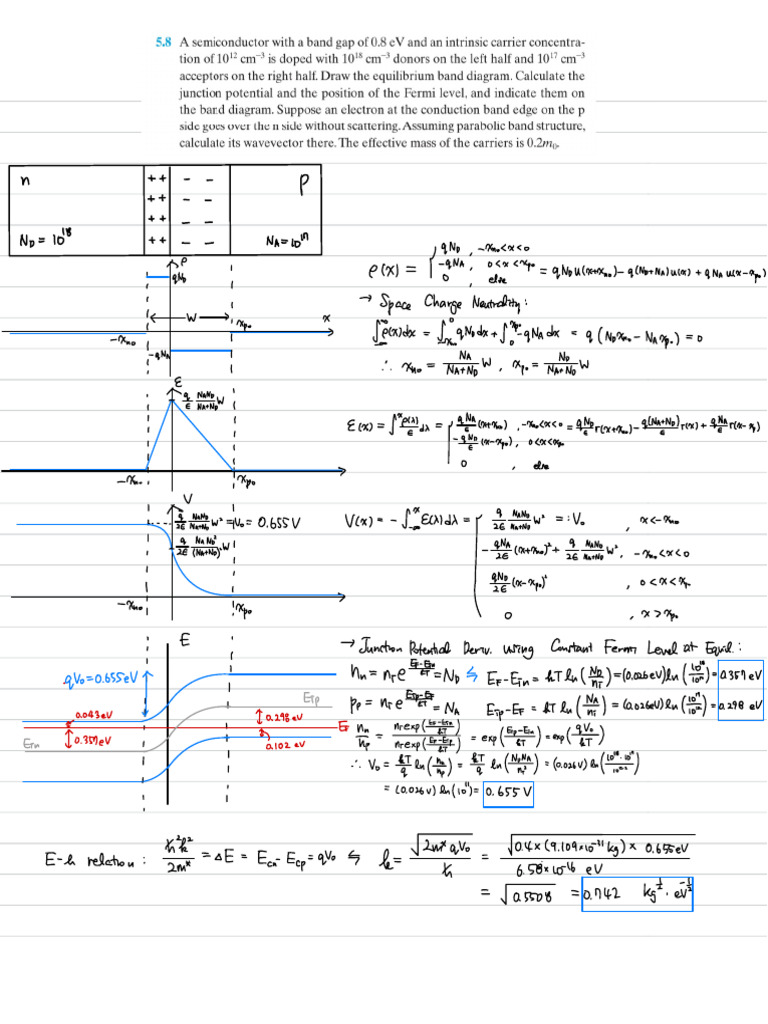 5.8 A semiconductor with a band gap of 0.8 eV and an intrinsic carrier concentra-
tion of 10¹² cm⁻³ is doped with 10¹⁸ cm⁻³ donors on the left half and 10¹⁷ cm⁻³
acceptors on the right half. Draw the equilibrium band diagram. Calculate the
junction potential and the position of the Fermi level, and indicate them on
the band diagram. Suppose an electron at the conduction band edge on the p
side goes over the n side without scattering. Assuming parabolic band structure,
calculate its wavevector there. The effective mass of the carriers is 0.2m₀.
n ++ - - p
++ - -
++ - -
N_D = 10¹⁸ ++ - - N_A = 10¹⁷
ρ
qN_D
W
x
-x_no x_po
-qN_A
ρ(x) = { qN_D, -x_no<x<0
-qN_A, 0<x<x_po
0, else
= qN_D u(x+x_no) - q(N_D+N_A)u(x) + qN_A u(x-x_po)
→ Space Charge Neutrality:
∫ρ(x)dx = ∫qN_D dx + ∫-qN_A dx = q(N_D x_no - N_A x_po) = 0
∴ x_no = N_A/(N_A+N_D) W, x_po = N_D/(N_A+N_D) W
ε
q/ϵ N_AN_D/(N_A+N_D) W
-x_no x_po
ε(x) = ∫^x ρ(λ)/ϵ dλ = { qN_A/ϵ (x+x_no), -x_no<x<0
-qN_D/ϵ (x-x_po), 0<x<x_po
0, else
= qN_D/ϵ r(x+x_no) - q(N_A+N_D)/ϵ r(x) + qN_A/ϵ r(x-x_p)
V
q/2ϵ N_AN_D/(N_A+N_D) W² = V₀ = 0.655 V
q/2ϵ N_AN_D²/(N_A+N_D)² W
-x_no x_po
V(x) = -∫^x ε(λ)dλ = { q/2ϵ N_AN_D/(N_A+N_D) W² =: V₀, x<-x_no
-qN_A/2ϵ (x+x_no)² + q/2ϵ N_AN_D/(N_A+N_D) W², -x_no<x<0
qN_D/2ϵ (x-x_po)², 0<x<x_p
0, x>x_po
E
qV₀=0.655eV
0.043eV
0.357eV
E_in
E_ip
0.298eV
E_F
0.102 eV
→ Junction Potential Deriv. Using Constant Fermi Level at Equil.:
n_n = n_i e^((E_F-E_in)/kT) = N_D ↳ E_F-E_in = kT ln(N_D/n_i) = (0.026eV) ln(10¹⁸/10¹²) = 0.357 eV
p_p = n_i e^((E_ip-E_F)/kT) = N_A E_ip-E_F = kT ln(N_A/n_i) = (0.026eV) ln(10¹⁷/10¹²) = 0.298 eV
n_n/n_p = n_i exp((E_F-E_in)/kT)/n_i exp((E_F-E_ip)/kT) = exp((E_ip-E_in)/kT) = exp(qV₀/kT)
∴ V₀ = kT/q ln(n_n/n_p) = kT/q ln(N_DN_A/n_i²) = (0.026V) ln(10¹⁸·10¹⁷/10¹²·²)
= (0.026V) ln(10¹¹) = 0.655 V
E-k relation: ħ²k²/2m* = ΔE = E_cn - E_cp = qV₀ ↳ k = √(2m*qV₀)/ħ = √(0.4×(9.109×10⁻³¹ kg)×0.655eV)/(6.58×10⁻¹⁶ eV)
= √0.5508 = 0.742 kg^(1/2)·eV^(-1/2)